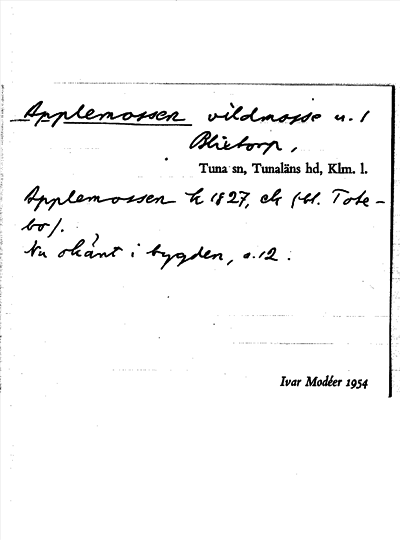 Applemossen vildmosse u. 1
Blietorp,
Tuna sn, Tunaläns hd, Klm. l.
Applemossen k 1827, ek (bl. Tote-
bo).
Nu okänt i bygden, s. 12.
Ivar Modéer 1954